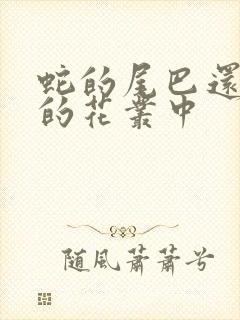 蛇的尾巴還
的花叢中
隨風蕭蕭兮